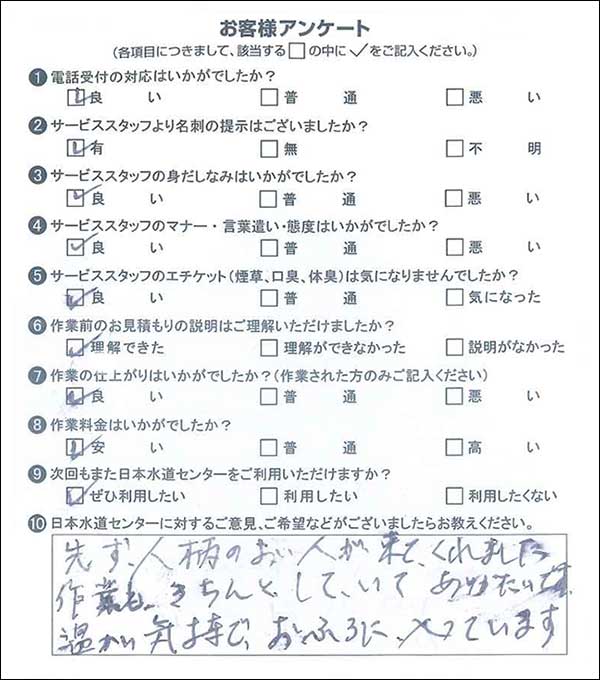 お客様アンケート
(各項目につきまして、該当する□の中に✓をご記入ください。)
❶電話受付の対応はいかがでしたか？
☑良い □普通 □悪い
❷サービススタッフより名刺の提示はございましたか？
☑有 □無 □不明
❸サービススタッフの身だしなみはいかがでしたか？
☑良い □普通 □悪い
❹サービススタッフのマナー・言葉遣い・態度はいかがでしたか？
☑良い □普通 □悪い
❺サービススタッフのエチケット(煙草、口臭、体臭)は気になりませんでしたか？
☑良い □普通 □気になった
❻作業前のお見積もりの説明はご理解いただけましたか？
☑理解できた □理解ができなかった □説明がなかった
❼作業の仕上がりはいかがでしたか？(作業された方のみご記入ください)
☑良い □普通 □悪い
❽作業料金はいかがでしたか？
☑安い □普通 □高い
❾次回もまた日本水道センターをご利用いただけますか？
☑ぜひ利用したい □利用したい □利用したくない
❿日本水道センターに対するご意見、ご希望などがございましたらお教えください。
先ず、人柄のよい人が来て、くれました
作業も、きちんと、して、いて ありがたいです。
温かい気持で、おふろに、入っています